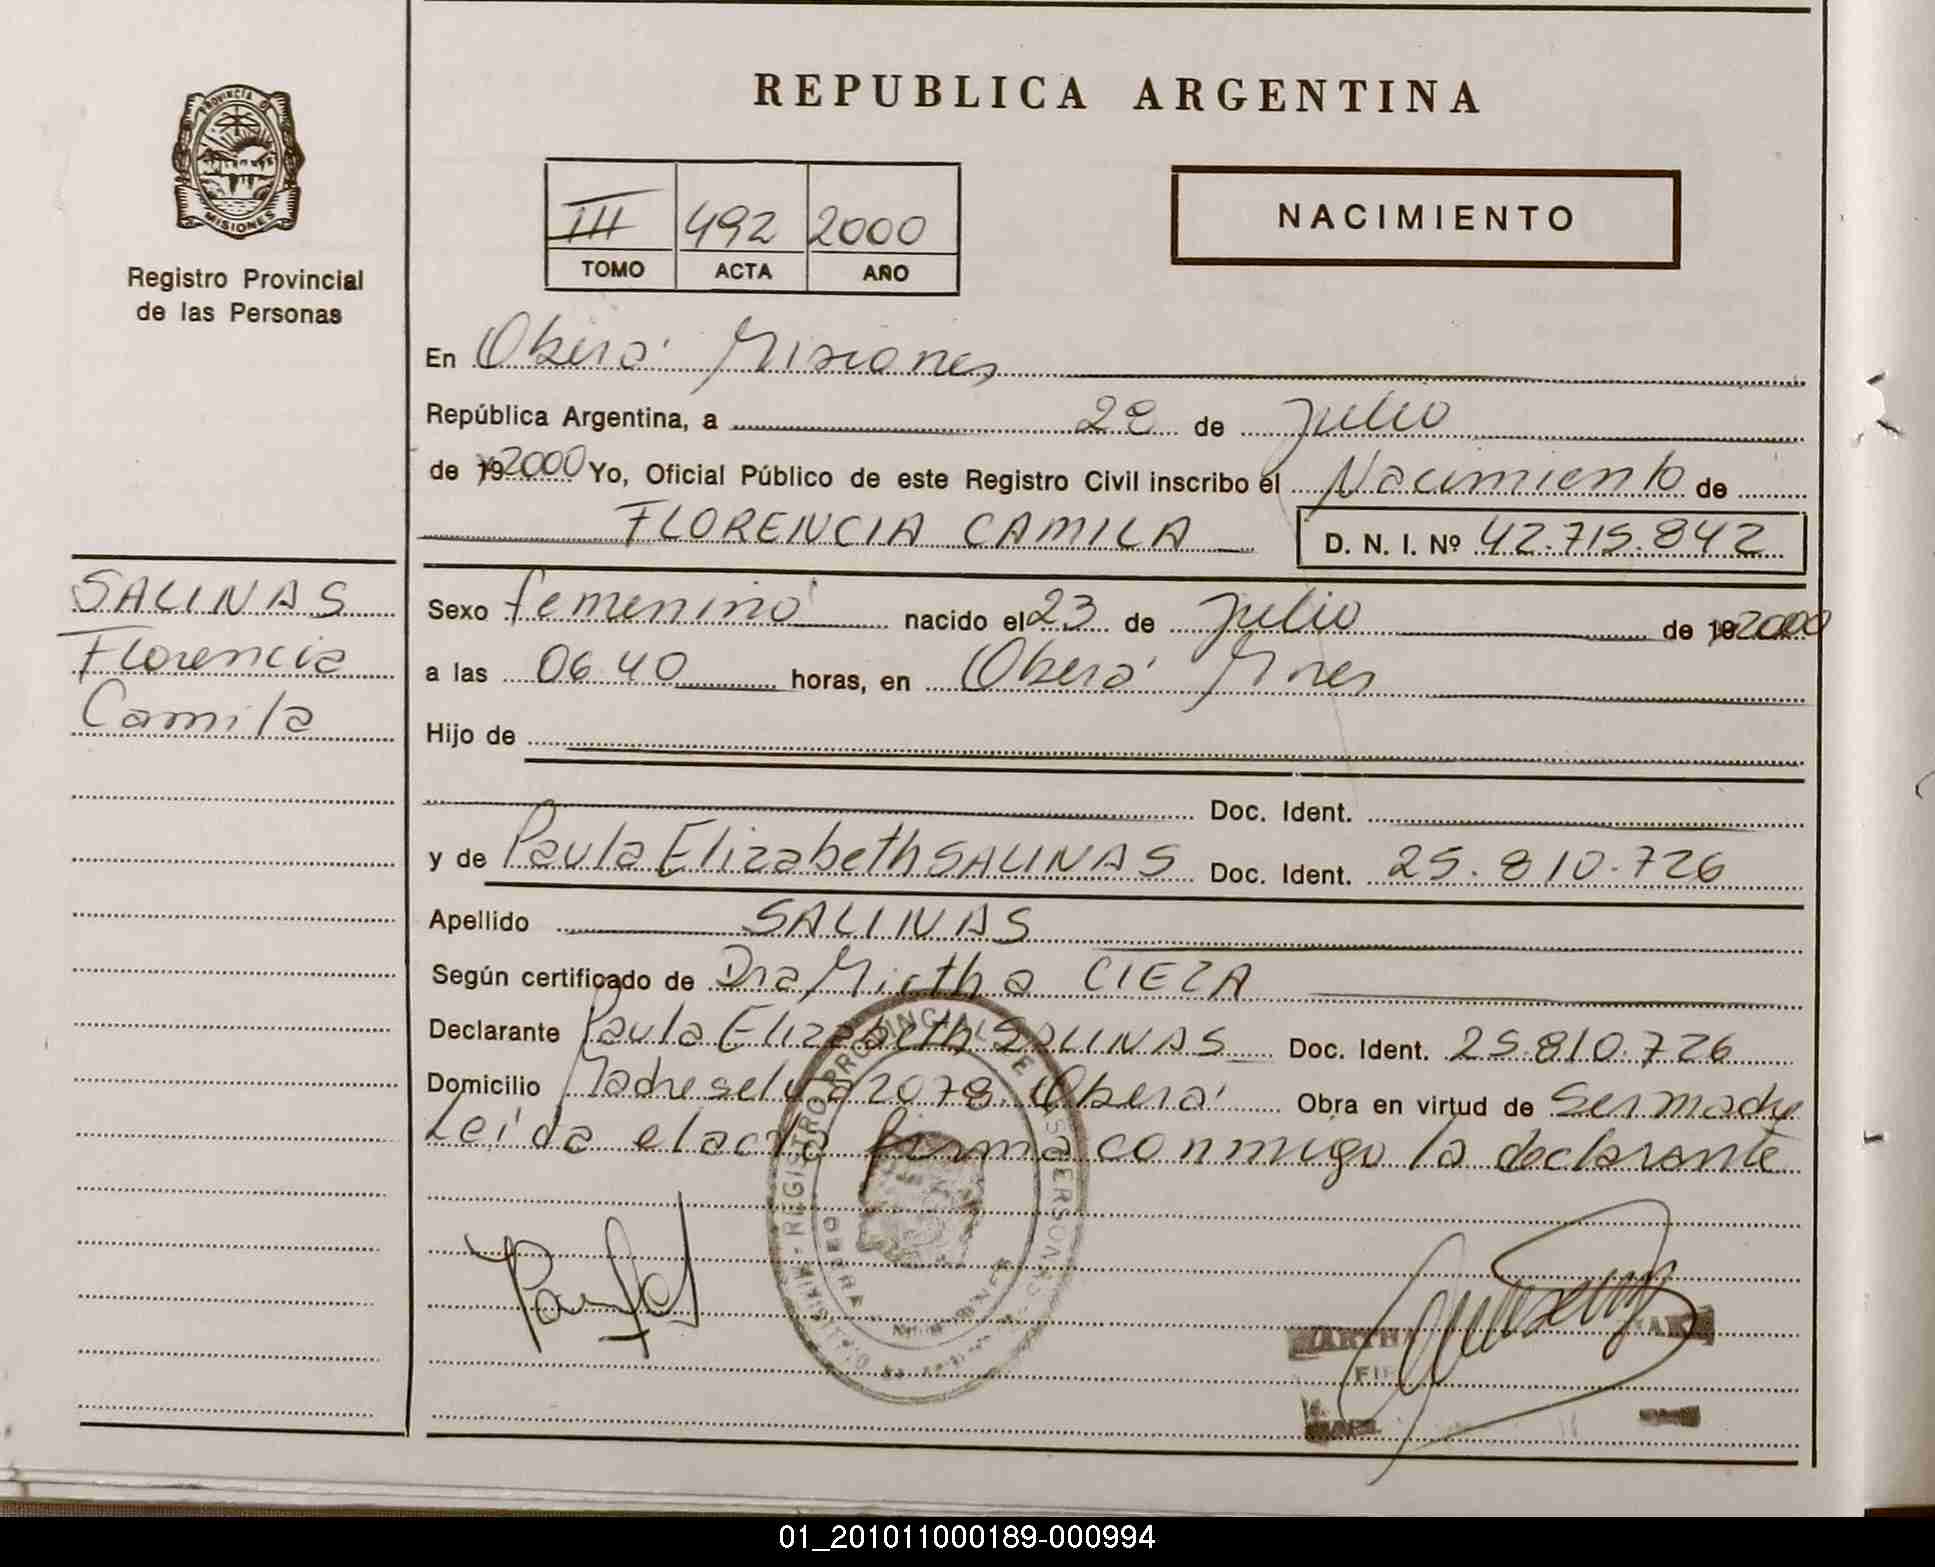 REPUBLICA ARGENTINA
PROVINCIA DE
MISIONES
Registro Provincial
de las Personas
III 492 2000
TOMO ACTA AÑO
NACIMIENTO
En Oberá Misiones
República Argentina, a 28 de Julio
de 192000 Yo, Oficial Público de este Registro Civil inscribo el Nacimiento de
FLORENCIA CAMILA D. N. I. Nº 42.715.842
SALINAS
Florencia
Camila
Sexo femenino nacido el 23 de Julio de 192000
a las 06 40 horas, en Oberá Mnes
Hijo de
Doc. Ident.
y de Paula Elizabeth SALINAS Doc. Ident. 25.810.726
Apellido SALINAS
Según certificado de Dra Mirtha CIEZA
Declarante Paula Elizabeth SALINAS Doc. Ident. 25.810.726
Domicilio Madreselva 2078 Oberá Obra en virtud de Ser madre
Leída el acta firma conmigo la declarante
REGISTRO PROVINCIAL DE LAS PERSONAS
OBERA
01_201011000189-000994